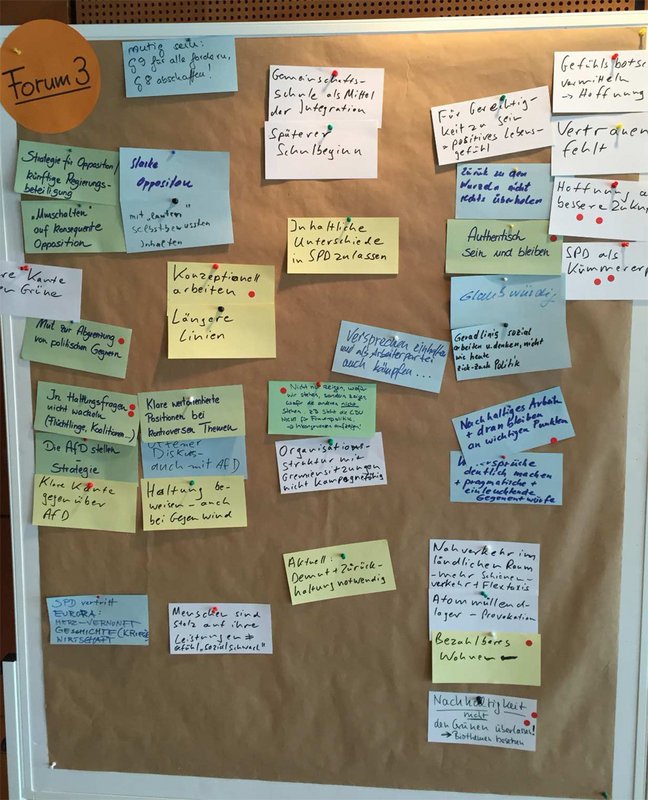 Forum 3
mutig sein:
G9 für alle fordern,
G8 abschaffen!
Gemeinschafts-
schule als Mittel
der Integration
Späterer
Schulbeginn
Für Gerechtig-
keit zu sein
positives Lebens-
gefühl
Gefühlsbotsc
vermitteln
→ Hoffnung
Vertrauen
fehlt
Hoffnung a
bessere Zukun
SPD als
Kümmererp
Strategie für Opposition/
künftige Regierungs-
beteiligung
Starke
Opposition
mit "lautem"
selbstbewussten
Inhalten
"Umschalten"
auf konsequente
Opposition
re Kante
en Grüne
Mut zur Abgrenzung
von politischen Gegnern
Konzeptionell
arbeiten
Längere
Linien
Inhaltliche
Unterschiede
in SPD zulassen
Zurück zu den
Wurzeln nicht
rechts überholen
Authentisch
Sein und bleiben
Glaubwürdig
Geradlinig sozial
arbeiten u. denken, nicht
wie heute
Zick-Zack Politik
Versprechen einhalten
und als Arbeiterpartei
auch kämpfen...
In Haltungsfragen
nicht wackeln
(Flüchtlinge, Koalitionen...)
Die AfD stellen
Strategie
Klare Kante
gegenüber
AfD
Klare wertorientierte
Positionen bei
kontroversen Themen
Offener
Diskurs
auch mit AfD
Haltung be-
weisen – auch
bei Gegenwind
Nicht nur zeigen, wofür
wir stehen, sondern zeigen
wofür die anderen nicht
stehen
Organisations-
struktur mit
Gremiensitzungen
nicht kampagnefähig
Nachhaltiges Arbeiten
+ dran bleiben
an wichtigen Punkten
sprüche
deutlich machen
+ pragmatische +
einleuchtende
Gegenentwürfe
Aktuell:
Demut + Zurück-
haltung notwendig
Nahverkehr im
ländlichen Raum
– mehr Schienen-
verkehr + Flextaxis
Atommüllend-
lager – Provokation
Bezahlbares
Wohnen
Nachhaltigkeit
nicht
den Grünen überlassen!
→ Biothemen besetzen
SPD vertritt
EUROPA:
HERZ – VERNUNFT
GESCHICHTE (KRIEG)
WIRTSCHAFT
Menschen sind
stolz auf ihre
Leistungen ≠
Gefühl "sozialschwach"